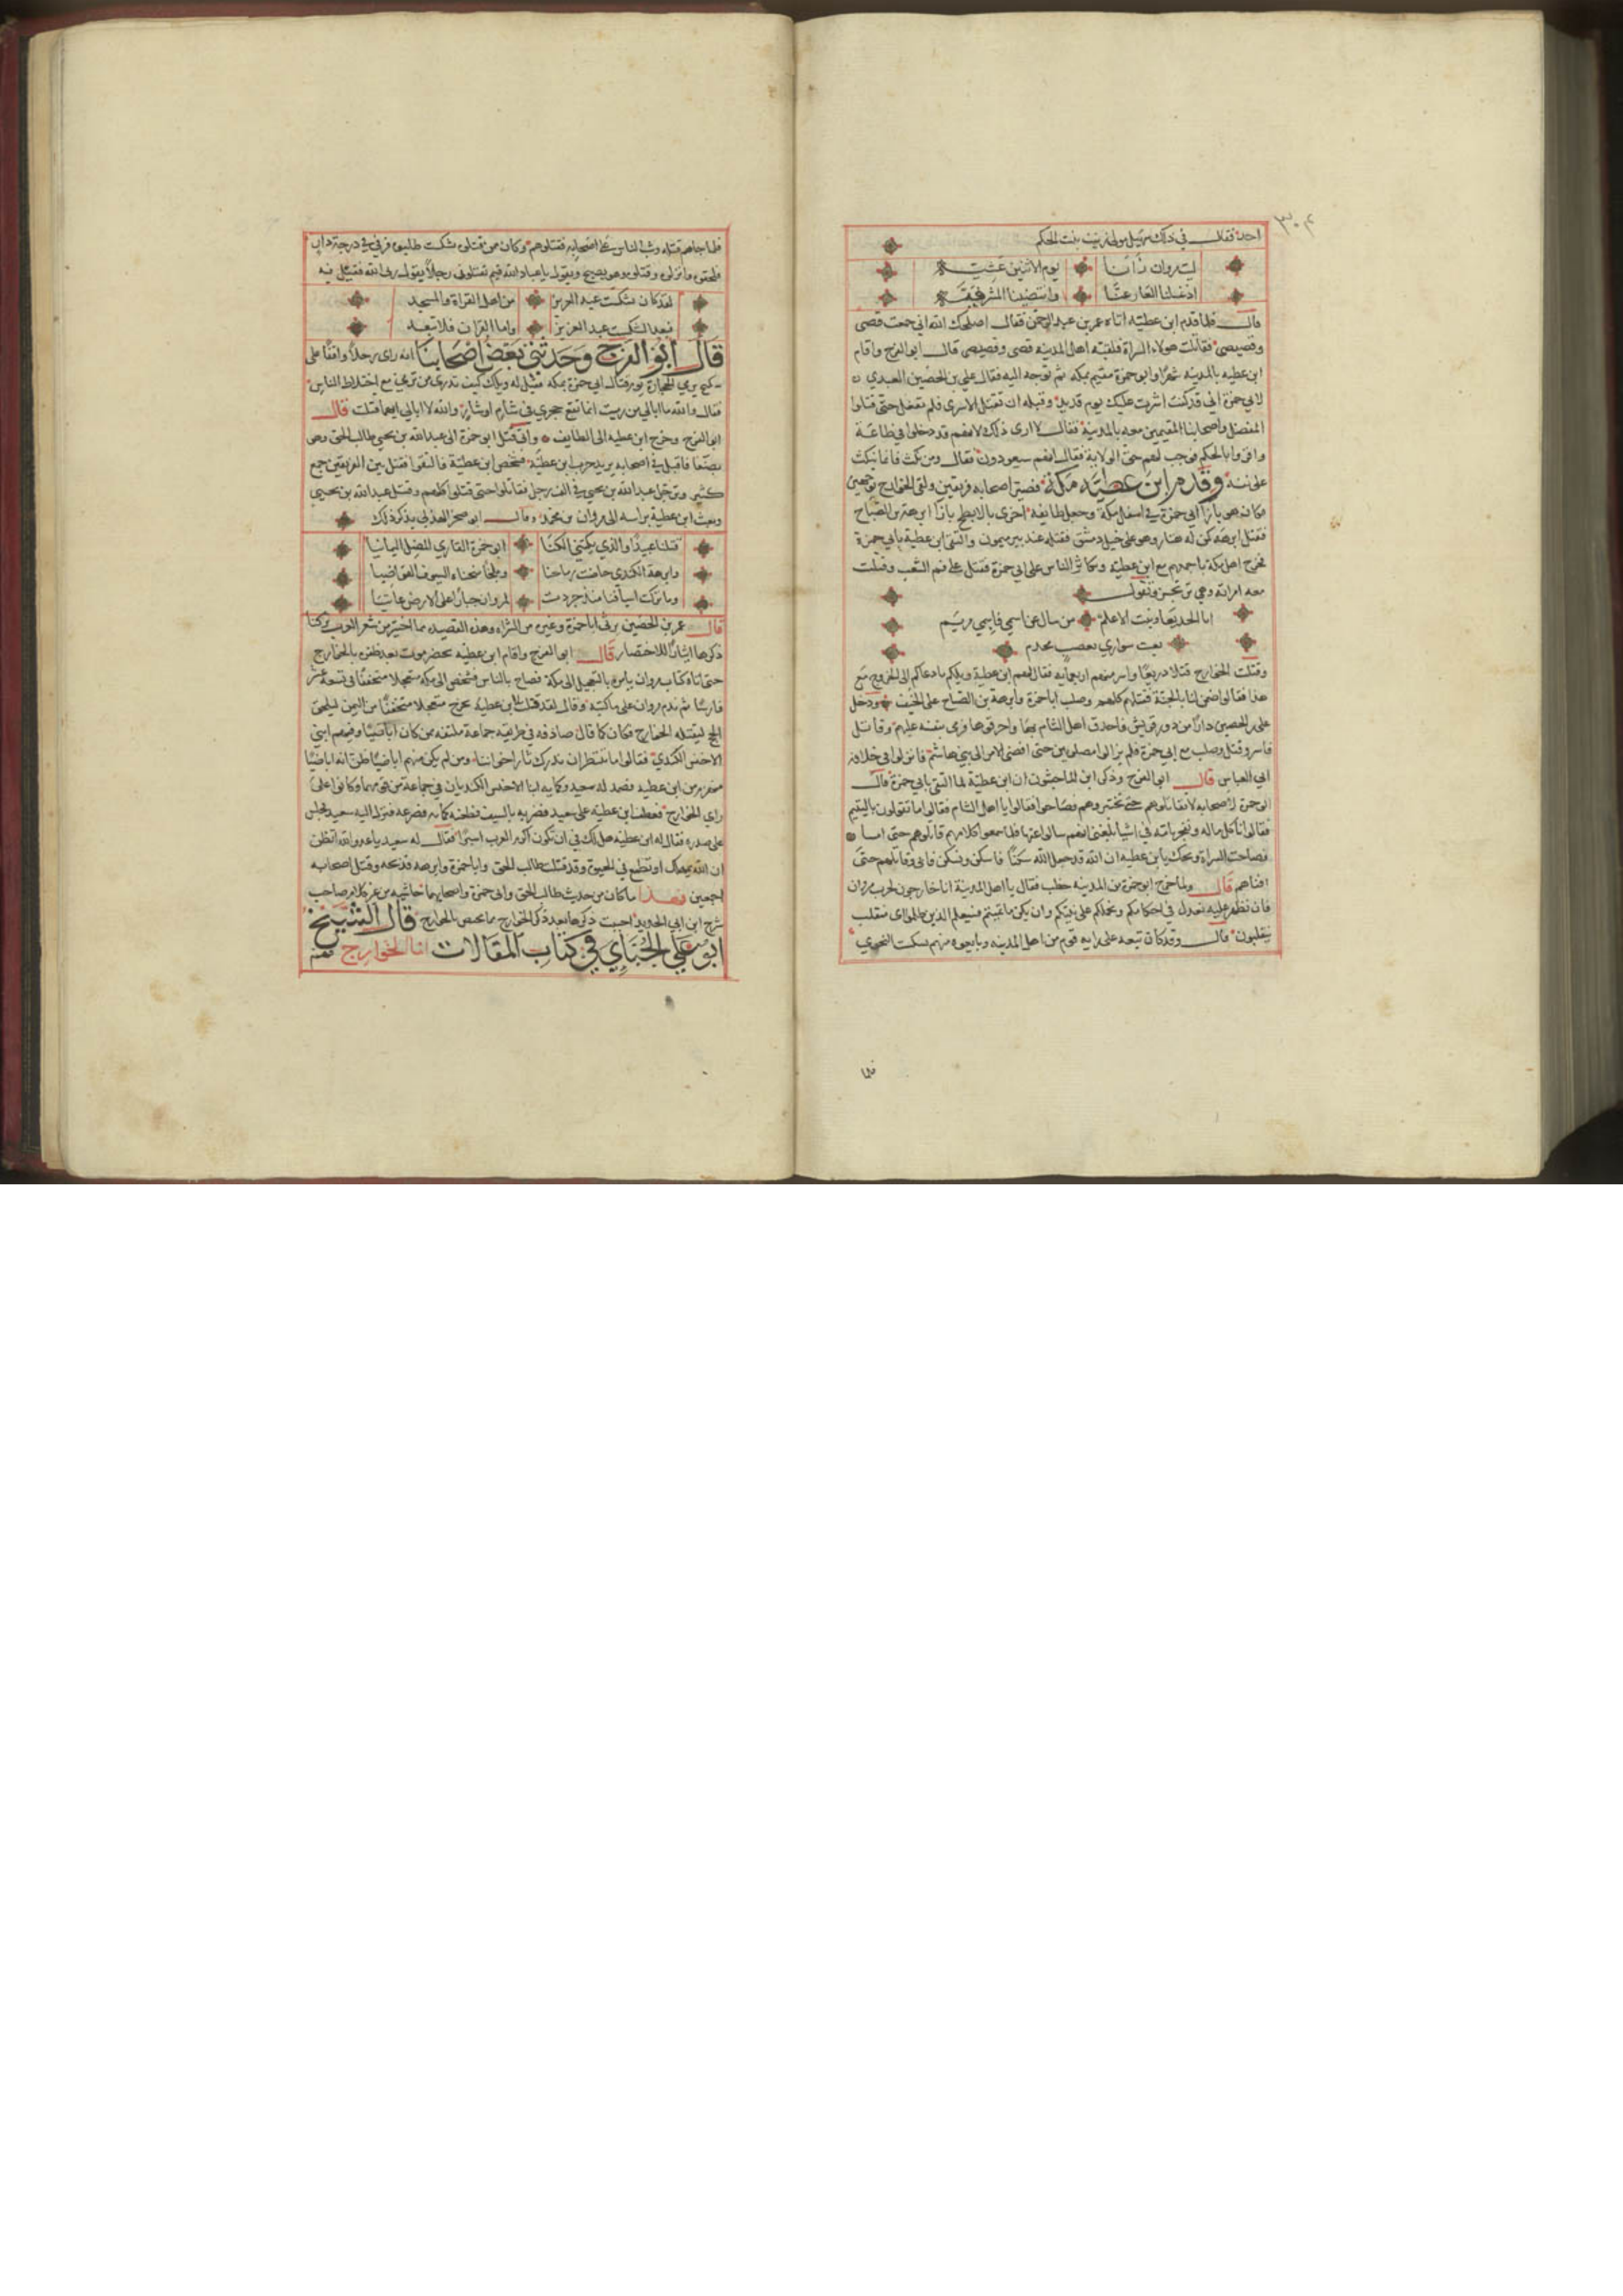 ٣٠٤
احد فقال في ذلك سهيل مولى زينب بنت الحكم
ليت مروان رآنا يوم الاثنين عشية
اذ غسلنا العار عنا وانتضينا المشرفية
قال فلما قدم ابن عطيه اتاه عمر بن عبد الرحمن فقال اصلحك الله اني جمعت قضى
وقضيضى فقاتلت هولاء الشراة فلقبه اهل المدينه قضى وقضيضى قال ابو الفرج واقام
ابن عطيه بالمدينه شهرا وابو حمزة مقيم بمكه ثم توجه اليه فقال علي بن الحصين العبدي
لابي حمزة اني قد كنت اشرت عليك يوم قديد وقبله ان تقتل الاسرى فلم تفعل حتى قتلوا
المفضل واصحابنا المقيمين معه بالمدينة فقال لا ارى ذلك لانهم قد دخلوا في طاعة
واقروا بالحكم فوجب لهم حق الولاية فقال انهم سيعودون فقال ومن نكث فانما ينكث
على نفسه وقدم ابن عطيه مكة فصير اصحابه فرقتين ولقى الخوارج من وجهين
فكان هو بازآ ابي حمزة في اسفل مكة وجعل طايفه اخرى بالابطح بازآ ابرهة بن الصباح
فقتل ابرهه كمن له هبار وهو على خيل دمشق فقتله عند بير ميمون والتقى ابن عطية بابي حمزة
فخرج اهل مكة باجمعهم مع ابن عطيه وتكاثر الناس على ابي حمزة فقتل على فم الشعب وقتلت
معه امراته وهي ترتجز وتقول
انا الجديعا وبنت الاعلم من سال عن اسمي فاسمي مريم
بعت سواري بعصب مخدم
وقتلت الخوارج قتلا ذريعا واسر منهم اربعمايه فقال لهم ابن عطية ويلكم ما دعاكم الى الخروج مع
هذا فقالوا ضمن لنا الجنة فقتلهم كلهم وصلب ابا حمزة وابرهة بن الصباح على الخيف ودخل
علي بن الحصين دارا من دور قريش فاحدق اهل الشام بها واحرقوها فرمى بنفسه عليهم وقاتل
فاسر وقتل وصلب مع ابي حمزة فلم يزالوا مصلوبين حتى افضى الامر الى بني هاشم فانزلوا في خلافة
ابي العباس قال ابو الفرج وذكر ابن الماجشون ان ابن عطيّة لما التقى بابي حمزة قال
ابو حمزة لاصحابه لا تقاتلوهم حتى تختبروهم فصاحوا فقالوا يا اهل الشام فقالوا ما تقولون باليتيم
فقالوا ناكل ماله ونفجر بامه في اشيا بلغني انهم سالوا عنها فلما سمعوا كلامهم قاتلوهم حتى امسا
فصاحت الشراة ويحك يا بن عطيه ان الله قد جعل الليل سكنا فاسكن ونسكن فابى وقاتلهم حتى
افناهم قال ولما خرج ابو حمزة من المدينه خطب فقال يا اهل المدينة انا خارجون لحرب مروان
فان نظهر عليه نعدل في احكامكم ونحملكم على سنة نبيكم وان يكن ما تمنيتم فسيعلم الذين ظلموا اى منقلب
ينقلبون قال وقد كان تبعه على رايه قوم من اهل المدينه وبايعوه منهم بشكست النحوي
فلما
فلما جاهم قتله وثب الناس على اصحابه فقتلوهم وكان ممن قتلوه بشكست طلبوه فرقى في درجة دار
فلحقوه وانزلوه وقتلوه وهو يصيح ويقول يا عباد الله فيم تقتلوني فقيل فيه
لقد كان بشكست عبد العزيز من اهل القراة والمسجد
فبعدا لبشكست عبد العزيز واما القران فلا تبعد
قال ابو الفرج وحدثني بعض اصحابنا انه راى رجلا واقفا على
سطح يرمي بالحجارة يوم قتال ابي حمزة بمكة فقيل له ويلك كيف تدري من ترمي مع اختلاط الناس
فقال والله ما ابالي من رميت انما تقع حجري في شام او شار والله لا ابالي ايهما قتلت قال
ابو الفرج وخرج ابن عطيه الى الطايف واتى قتل ابو حمزة الى عبد الله بن يحيى طالب الحق وهو
بصنعا فاقبل في اصحابه يريد حرب ابن عطيه فشخص ابن عطيّة فالتقوا فقتل بين الفريقين جمع
كثير وترجل عبد الله بن يحيى في الف رجل فقاتلوا حتى قتلوا كلهم وقتل عبد الله بن يحيى
وبعث ابن عطية براسه الى مروان بن محمد وقال ابو صخر الهذلي يذكر ذلك
قتلنا عبيدا والذي يكتني الكنا ابو حمزة القاري المضل اليمانيا
وابرهة الكندي خاضت رماحنا وبلخا منحناه السيوف القواضيا
وما تركت اسيافنا منذ جردت لمروان جبارا على الارض عاتيا
قال عمر بن الحصين يرثى ابا حمزة وغيره من الشراه وهذه القصيده مما اختير من شعر العرب تركنا
ذكرها ايثارا للاختصار قال ابو الفرج واقام ابن عطيه بحضرموت بعد ظفره بالخوارج
حتى اتاه كتاب مروان يامره بالتعجيل الى مكة فيحج بالناس فشخص الى مكة متعجلا متخففا في تسعة عشر
فارسا ثم ندم مروان على ما كتبه وقال لقد قتلت ابن عطيه يخرج متعجلا متخففا من اليمن ليلحق
الحج ليقتله الخوارج فكان كما قال صادفه في طريقه جماعة ملففة من كان اباضيا وفيهم ابني
الاخنس الكندي فقالوا ما ننتظر ان ندرك ثار اخواننا ومن لم يكن منهم اباضيا ظن انه اباضيا
منهزم من ابن عطيه فصمد له سعيد وكمانه ابنا الاخنس الكنديان في جماعة من قومهما وكانوا على
راي الخوارج فعطف ابن عطيه على سعيد فضربه بالسيف وطعنه كمانه فصرعه فنزل اليه سعيد فجلس
على صدره فقال له ابن عطيه هل لك في ان تكون اكرم العرب اسيرا فقال له سعيد يا عدو الله اتظن
ان الله يمهلك او تطمع في الحيوة وقد قتلت طالب الحق وابا حمزة وابرهه فذبحه وقتل اصحابه
اجمعين فهذا ما كان من حديث طالب الحق وابي حمزة واصحابهما
شرح ابن ابي الحديد احببت ذكرها بعد ذكر الخوارج مما يختص بالخوارج قال الشيخ
ابو علي الجبائي في كتاب المقالات اما الخوارج فهم